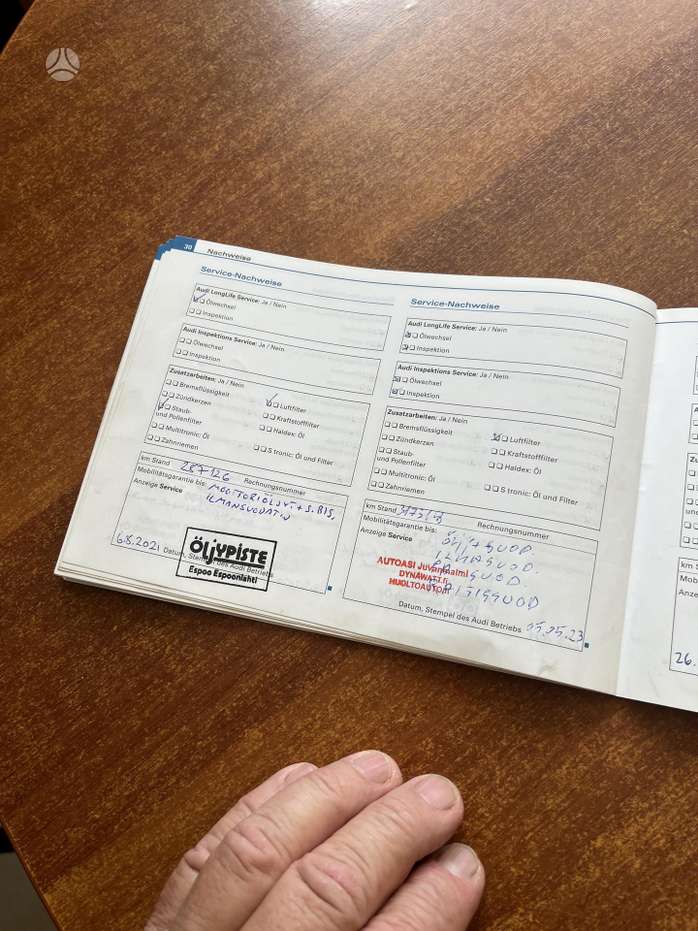 30 Nachweise
Service-Nachweise
Audi LongLife Service: Ja / Nein
Ölwechsel
Inspektion
Audi Inspektions Service: Ja / Nein
Ölwechsel
Inspektion
Zusatzarbeiten: Ja / Nein
Bremsflüssigkeit
Zündkerzen
Staub-
und Pollenfilter
Multitronic: Öl
Zahnriemen
Luftfilter
Kraftstofffilter
Haldex: Öl
S tronic: Öl und Filter
km Stand 287126 Rechnungsnummer
Mobilitätsgarantie bis: MOOTTORIÖLJYT + S. BIS,
Anzeige Service ILMANSUODATIN
6.8.2021 Datum, Stempel des Audi Betriebs
ÖLJYPISTE
Espoo Espoonlahti
Service-Nachweise
Audi LongLife Service: Ja / Nein
Ölwechsel
Inspektion
Audi Inspektions Service: Ja / Nein
Ölwechsel
Inspektion
Zusatzarbeiten: Ja / Nein
Bremsflüssigkeit
Zündkerzen
Staub-
und Pollenfilter
Multitronic: Öl
Zahnriemen
Luftfilter
Kraftstofffilter
Haldex: Öl
S tronic: Öl und Filter
km Stand Rechnungsnummer
Mobilitätsgarantie bis:
Anzeige Service ÖLJY + SUOD.
ILMASUOD.
SUOD.
AUTOASI Juvanmalmi
DYNAWATT.fi
HUOLTOAUTO.fi
Datum, Stempel des Audi Betriebs 05.05.23
km S
Mobi
Anze
26.